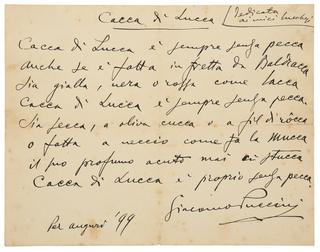 Cacca di Lucca
(Dedicata
ai miei lucchesi)
Cacca di Lucca è sempre senza pecca
anche se è fatta in fretta da Baldracca
Sia gialla, nera o rossa come lacca
Cacca di Lucca è sempre senza pecca.
Sia secca, a oliva cucca o a fil di rócca
o fatta a neccio come fa la mucca
il suo profumo acuto mai ci stucca
Cacca di Lucca è proprio senza pecca.
Giacomo Puccini
Per auguri '99